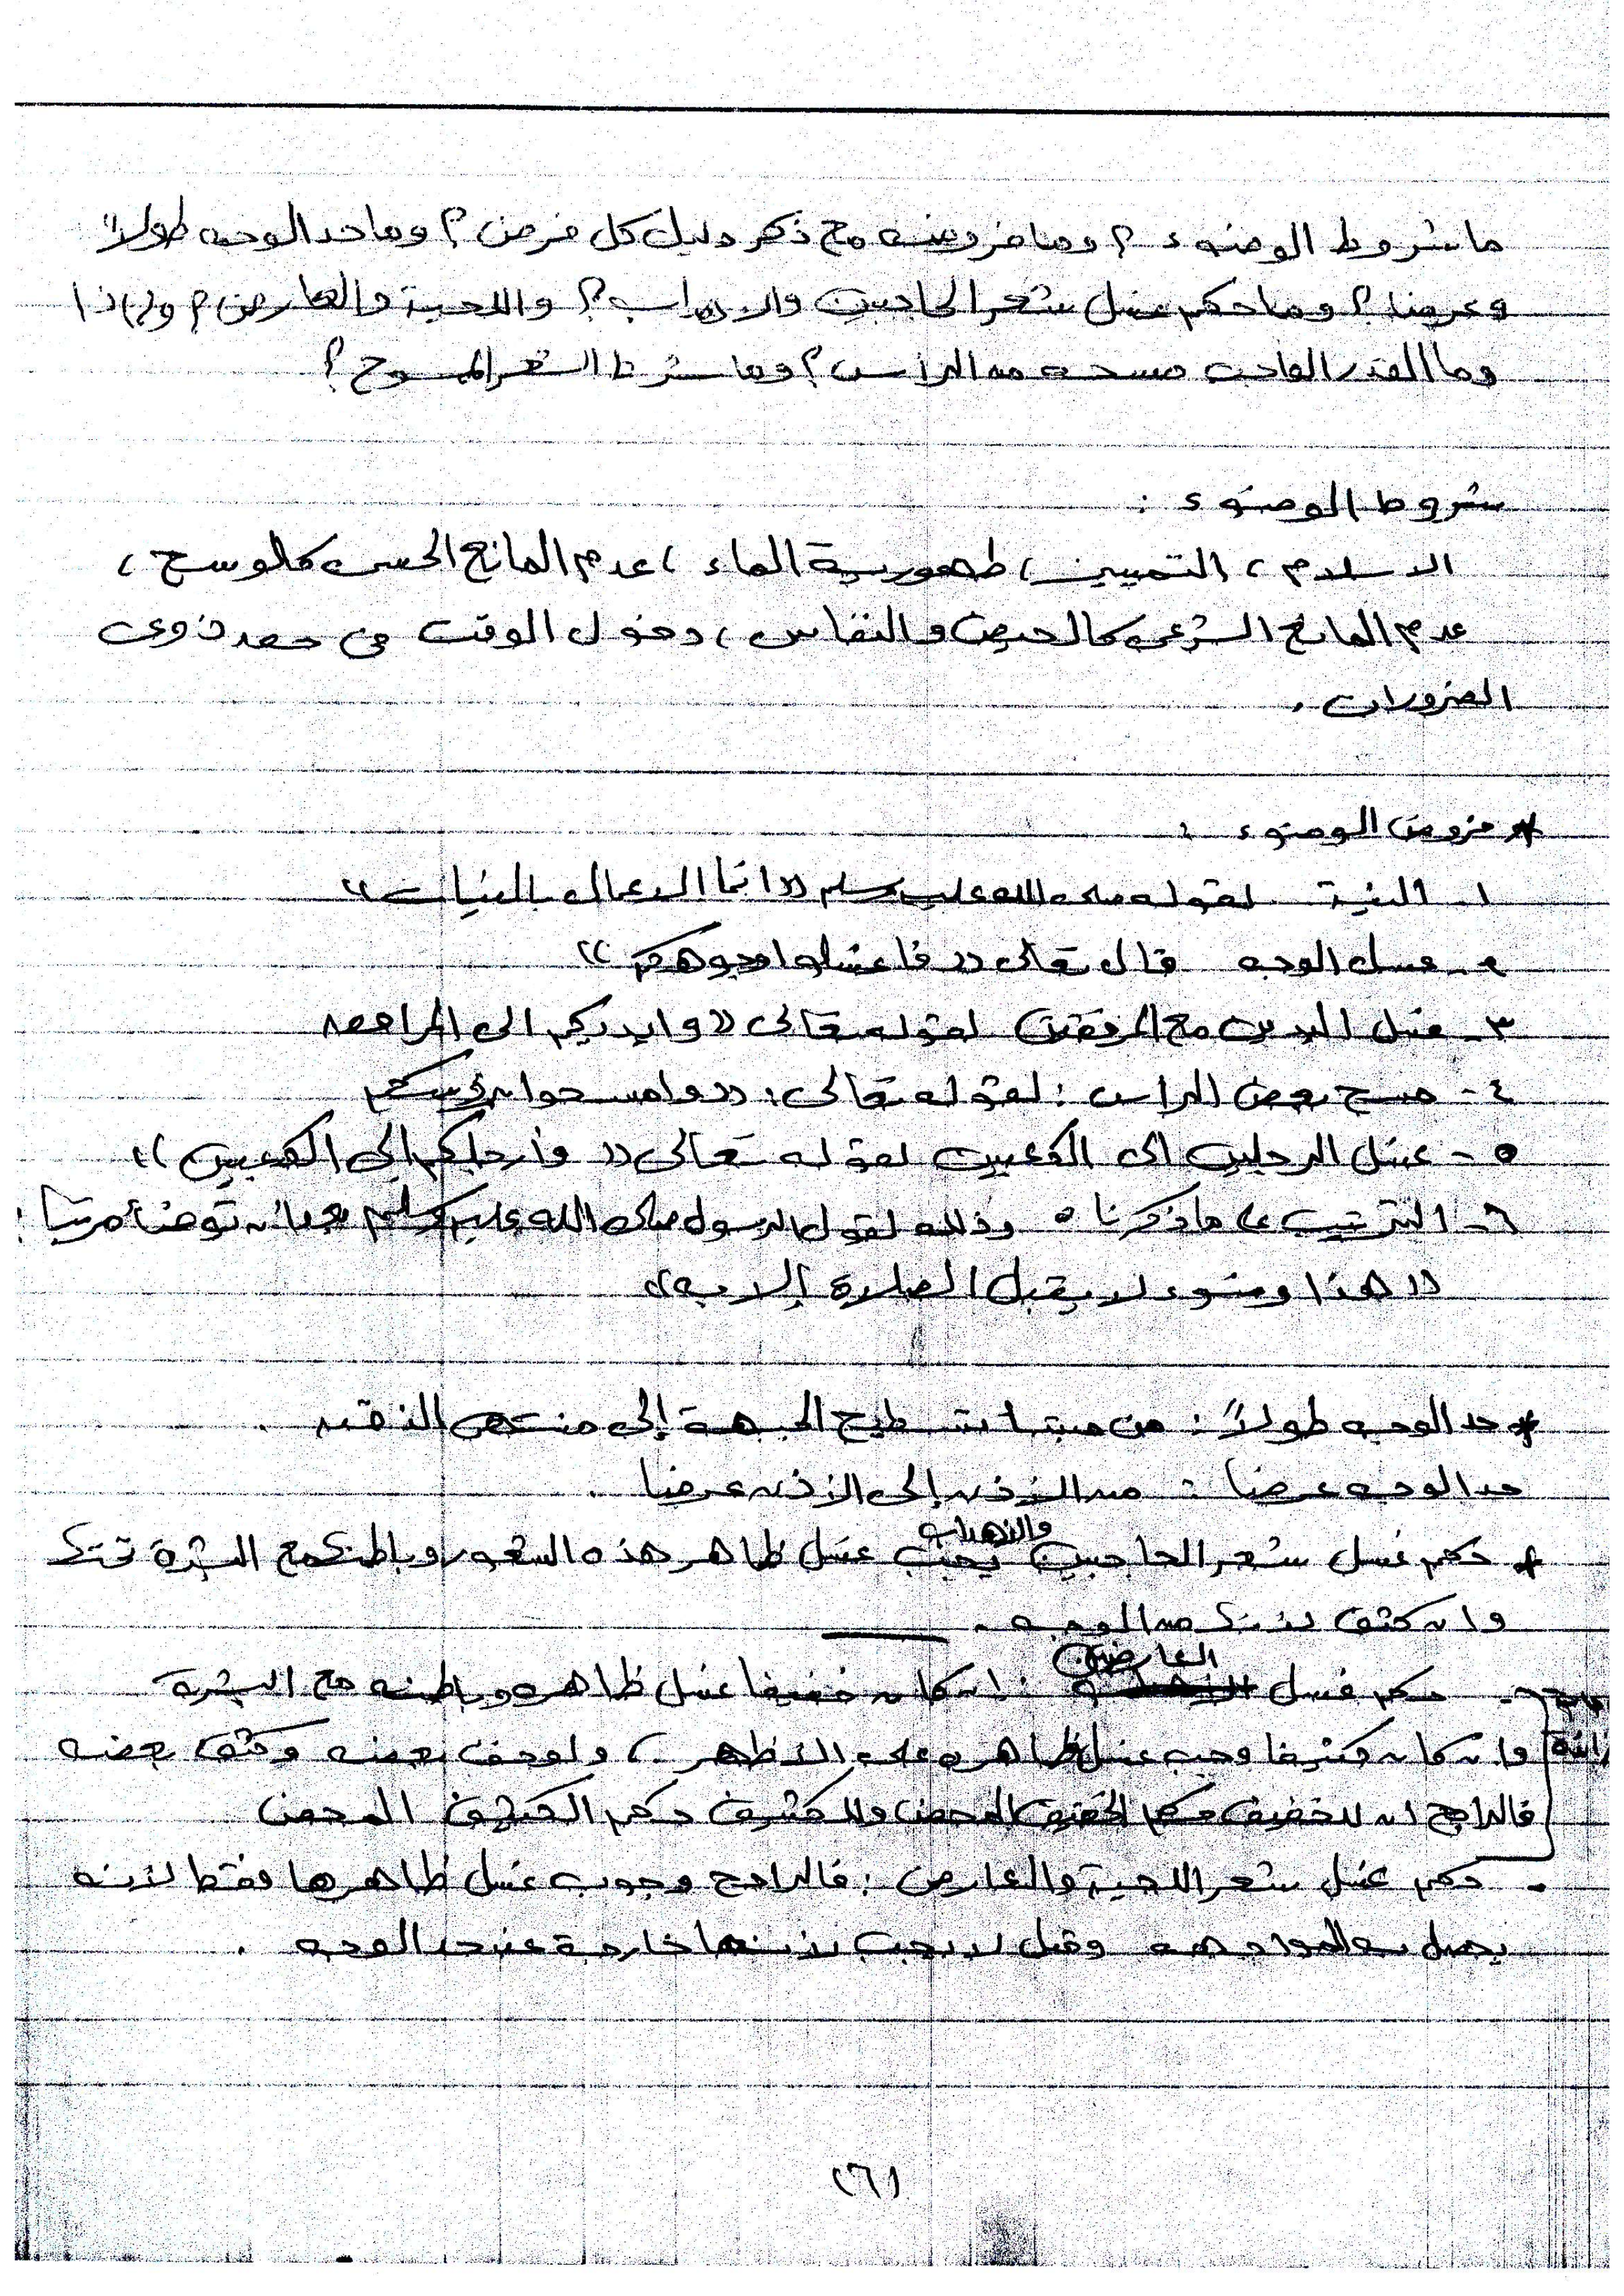 ما شروط الوضوء ؟ وما فروضه مع ذكر دليل كل فرض ؟ وما حد الوجه طولاً
وعرضا ؟ وما حكم غسل شعر الحاجبين والاهداب ؟ واللحية والعارض ؟ ولماذا
وما القدر الواجب مسحه من الرأس ؟ وما شرط الشعر الممسوح ؟
شروط الوضوء :
الاسلام ، التمييز ، طهورية الماء ، عدم المانع الحسى كالوسخ ،
عدم المانع الشرعى كالحيض والنفاس ، دخول الوقت فى حق ذوى
الضرورات .
* فروض الوضوء :
١- النية لقوله صلى الله عليه وسلم (( انما الاعمال بالنيات ))
٢- غسل الوجه قال تعالى (( فاغسلوا وجوهكم ))
٣- غسل اليدين مع المرفقين لقوله تعالى (( وايديكم الى المرافق
٤- مسح بعض الراس : لقوله تعالى : (( وامسحوا برؤسكم
٥- غسل الرجلين الى الكعبين لقوله تعالى (( وأرجلكم إلى الكعبين ))
٦- الترتيب على ما ذكرنا . وذلك لقول الرسول صلى الله عليه وسلم بعد أن توضأ مرتبا :
(( هذا وضوء لا يقبل الصلاة إلا به ))
* حد الوجه طولاً : من مبتدا تسطيح الجبهة إلى منتهى الذقن .
حد الوجه عرضا : من الأذن إلى الأذن عرضا .
* حكم غسل شعر الحاجبين والاهداب يجب غسل ظاهر هذه الشعور وباطنها مع البشرة تحتها
وان كثف لانها من الوجه .
- حكم غسل العارضين : ان كان خفيفا غسل ظاهره وباطنه مع البشرة
وان كان كثيفا وجب غسل ظاهره على الأظهر ، ولو خف بعضه وكثف بعضه
فالراجح ان للخفيف حكم الخفيف المحض وللكثيف حكم الكثيف المحض
- حكم غسل شعر اللحية والعارض : فالراجح وجوب غسل ظاهرها فقط لأنه
يحصل به المواجهه وقيل لا يجب لأنها خارجة عن حد الوجه .
(٦)